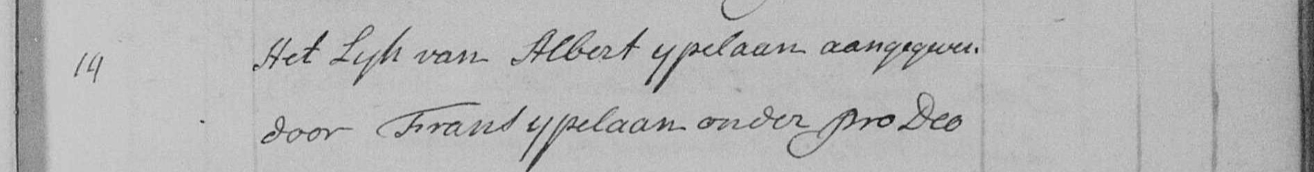 14 Het Lijk van Albert ypelaan aangegeven
door Frans ypelaan onder pro Deo